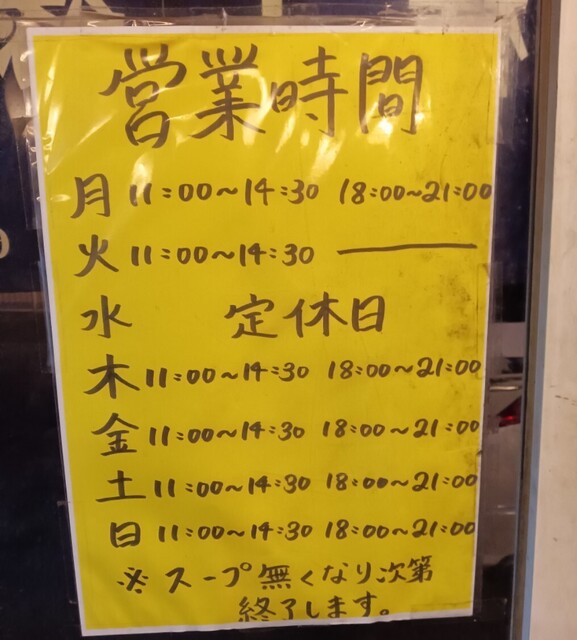 営業時間
月 11:00〜14:30 18:00〜21:00
火 11:00〜14:30 ―
水 定休日
木 11:00〜14:30 18:00〜21:00
金 11:00〜14:30 18:00〜21:00
土 11:00〜14:30 18:00〜21:00
日 11:00〜14:30 18:00〜21:00
※スープ無くなり次第
終了します。